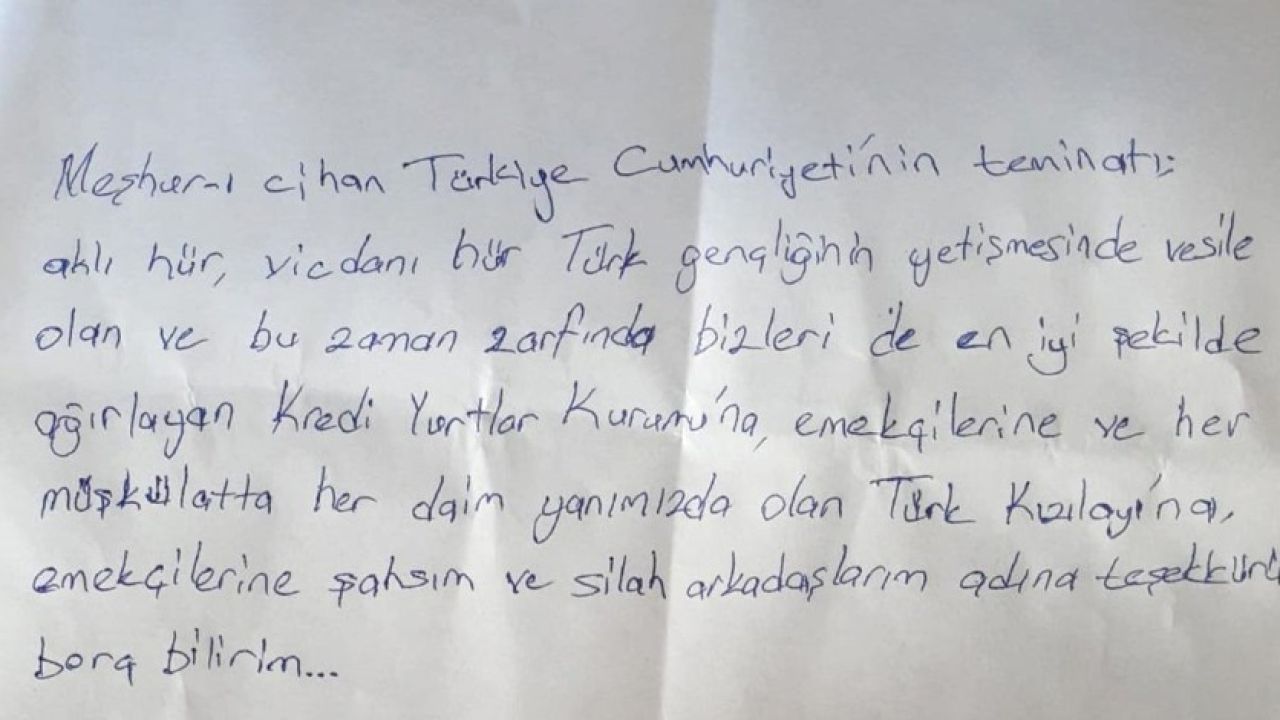 Meşhur-ı cihan Türkiye Cumhuriyeti'nin teminatı;
aklı hür, vicdanı hür Türk gençliğinin yetişmesinde vesile
olan ve bu zaman zarfında bizleri de en iyi şekilde
ağırlayan Kredi Yurtlar Kurumu'na, emekçilerine ve her
müşkülatta her daim yanımızda olan Türk Kızılayı'na,
emekçilerine şahsım ve silah arkadaşlarım adına teşekkürü
borç bilirim...